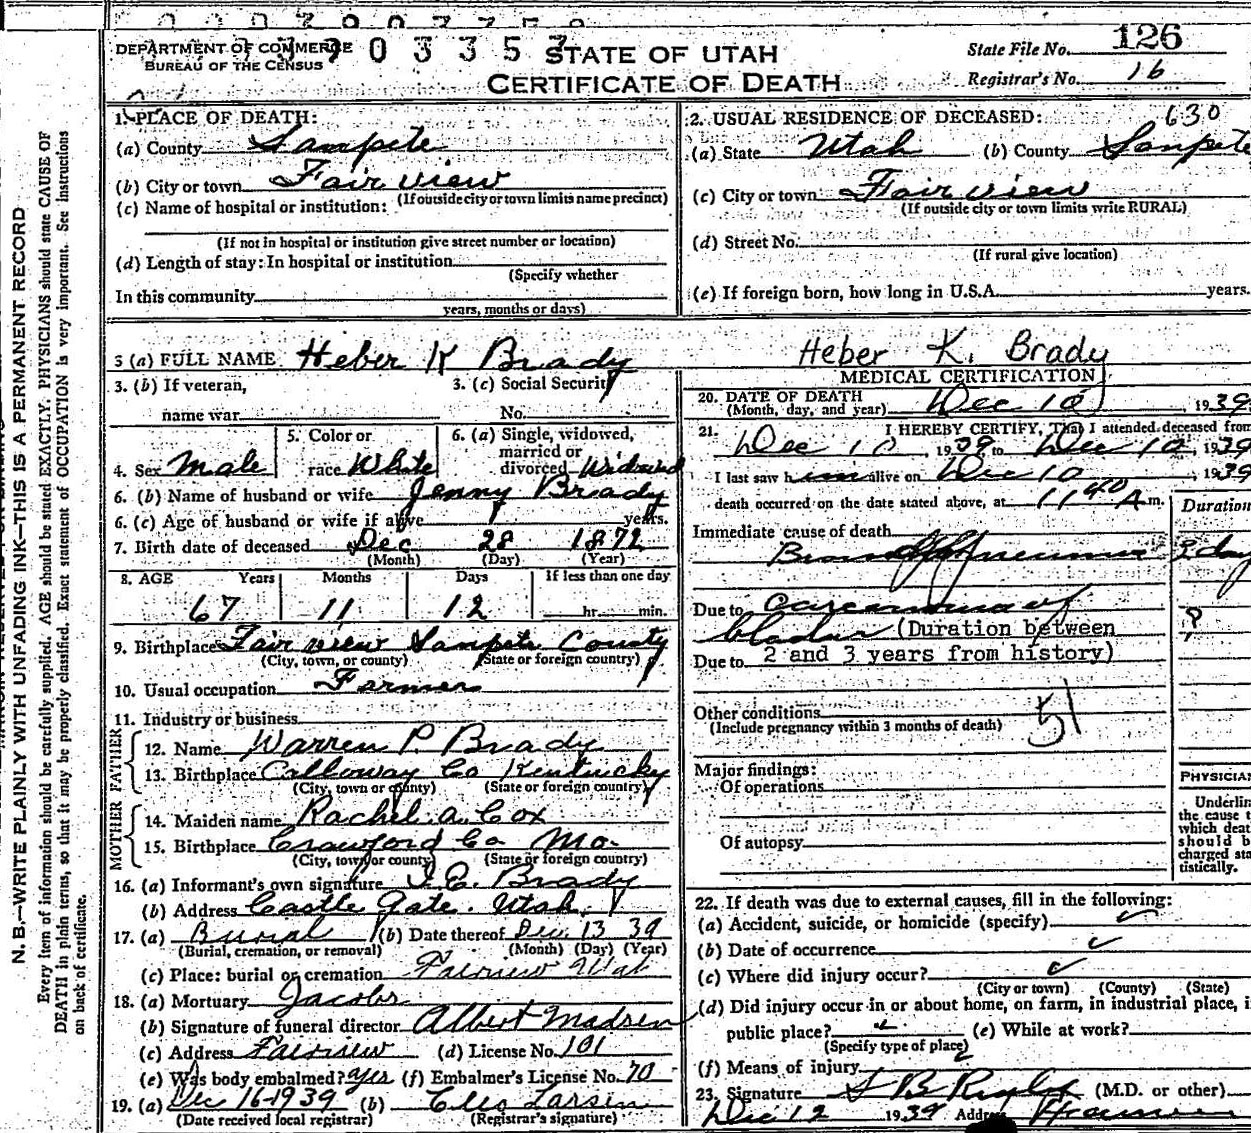 DEPARTMENT OF COMMERCE
BUREAU OF THE CENSUS
STATE OF UTAH
CERTIFICATE OF DEATH
State File No. 126
Registrar's No. 16
N. B.—WRITE PLAINLY WITH UNFADING INK—THIS IS A PERMANENT RECORD
Every item of information should be carefully supplied. AGE should be stated EXACTLY. PHYSICIANS should state CAUSE OF
DEATH in plain terms, so that it may be properly classified. Exact statement of OCCUPATION is very important. See Instructions
on back of certificate.
1. PLACE OF DEATH:
(a) County Sanpete
(b) City or town Fairview
(If outside city or town limits name precinct)
(c) Name of hospital or institution:
(If not in hospital or institution give street number or location)
(d) Length of stay: In hospital or institution
(Specify whether
In this community
years, months or days)
2. USUAL RESIDENCE OF DECEASED: 630
(a) State Utah (b) County Sanpete
(c) City or town Fairview
(If outside city or town limits write RURAL)
(d) Street No.
(If rural give location)
(e) If foreign born, how long in U.S.A. years.
3 (a) FULL NAME Heber K Brady
Heber K. Brady
3. (b) If veteran,
name war
3. (c) Social Security
No.
4. Sex Male
5. Color or
race White
6. (a) Single, widowed,
married or
divorced Widowed
6. (b) Name of husband or wife Jenny Brady
6. (c) Age of husband or wife if alive years.
7. Birth date of deceased Dec 28 1872
(Month) (Day) (Year)
8. AGE Years Months Days If less than one day
67 11 12 hr. min.
9. Birthplace Fairview Sanpete County
(City, town, or county) (State or foreign country)
10. Usual occupation Farmer
11. Industry or business
FATHER
12. Name Warren P. Brady
13. Birthplace Calloway Co Kentucky
(City, town or county) (State or foreign country)
MOTHER
14. Maiden name Rachel A. Cox
15. Birthplace Crawford Co Mo.
(City, town or county) (State or foreign country)
16. (a) Informant's own signature I. E. Brady
(b) Address Castle Gate. Utah.
17. (a) Burial (b) Date thereof Dec. 13 39
(Burial, cremation, or removal) (Month) (Day) (Year)
(c) Place: burial or cremation Fairview Utah
18. (a) Mortuary Jacobs
(b) Signature of funeral director Albert Madsen
(c) Address Fairview (d) License No. 101
(e) Was body embalmed? yes (f) Embalmer's License No. 70
19. (a) Dec 16-1939 (b) Cleo Larsen
(Date received local registrar) (Registrar's signature)
MEDICAL CERTIFICATION
20. DATE OF DEATH
(Month, day, and year) Dec 10, 1939
21. I HEREBY CERTIFY, That I attended deceased from
Dec 10, 1939, to Dec 10, 1939
I last saw him alive on Dec 10, 1939
death occurred on the date stated above, at 11 40 A m.
Duration
Immediate cause of death
Bronchopneumonia 3 day
Due to Carcinoma of
bladder (Duration between ?
Due to 2 and 3 years from history)
Other conditions
(Include pregnancy within 3 months of death)
51
Major findings:
Of operations
Of autopsy
PHYSICIAN
Underline
the cause t
which deat
should b
charged sta
tistically.
22. If death was due to external causes, fill in the following:
(a) Accident, suicide, or homicide (specify)
(b) Date of occurrence
(c) Where did injury occur?
(City or town) (County) (State)
(d) Did injury occur in or about home, on farm, in industrial place, i
public place? (e) While at work?
(Specify type of place)
(f) Means of injury
23. Signature (M.D. or other)
Dec 12 1939 Address